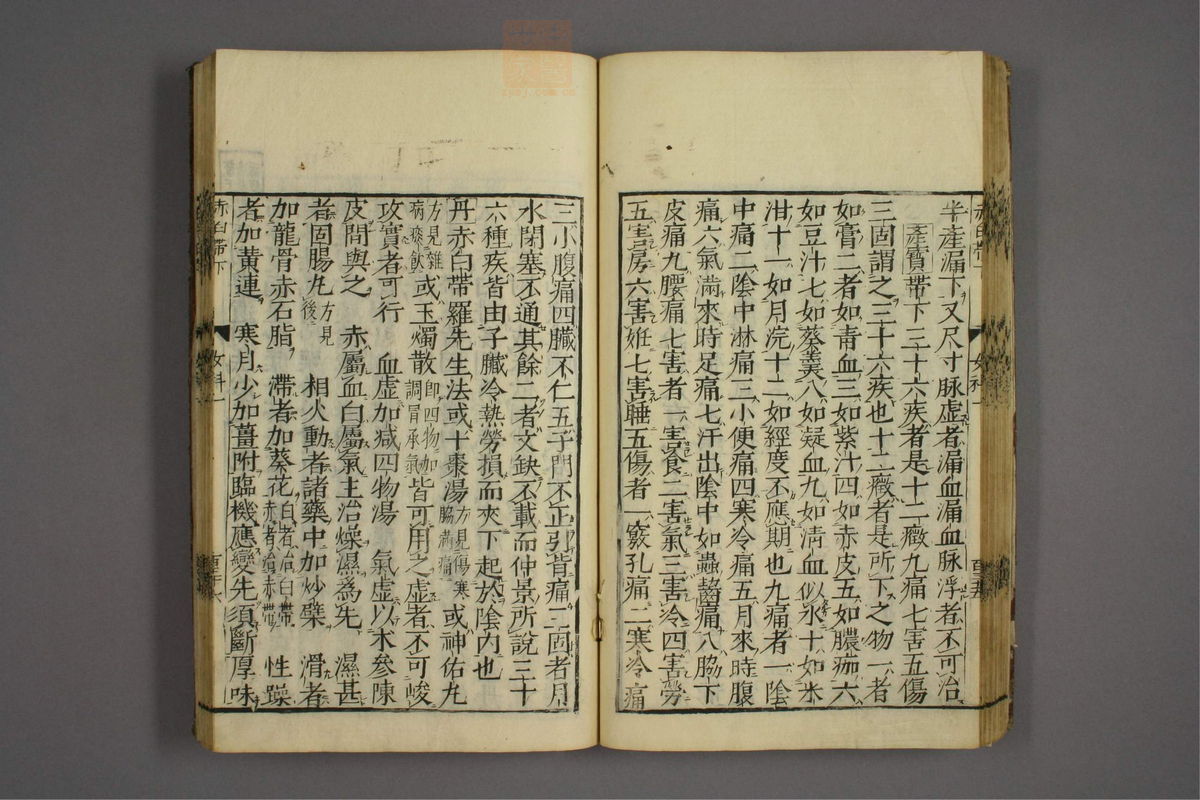 半產漏下又尺寸脉虛者漏血漏血脉浮者不可治
產寶帶下三十六疾者是十二癥九痛七害五傷
三固謂之三十六疾也十二癥者是所下之物一者
如膏二者如青血三如紫汁四如赤皮五如膿痂六
如豆汁七如葵羹八如凝血九如淸血似水十如米
泔十一如月浣十二如經度不應期也九痛者一陰
中痛二陰中淋痛三小便痛四寒冷痛五月來時腹
痛六氣滿來時足痛七汗出陰中如蟲齧痛八脇下
皮痛九腰痛七害者一害食二害氣三害冷四害勞
五害房六害姙七害睡五傷者一竅孔痛二寒冷痛
三小腹痛四臓不仁五子門不正引背痛三固者月
水閉塞不通其餘二者文缺不載而仲景所說三十
六種疾皆由子臓冷熱勞損而夾下起於陰內也
丹赤白帶羅先生法或十棗湯方見傷寒脇滿痛或神佑丸
方見雜病痰飮或玉燭散卽四物加調胃承氣皆可用之虛者不可峻
攻實者可行 血虛加減四物湯 氣虛以木參陳
皮間與之 赤屬血白屬氣主治燥濕為先 濕甚
者固腸丸方見後 相火動者諸藥中加炒檗 滑者
加龍骨赤石脂 滯者加葵花白者治白帶赤者治赤帶 性躁
者加黃連 寒月少加薑附臨機應變先須斷厚味
赤白帶下
女科一